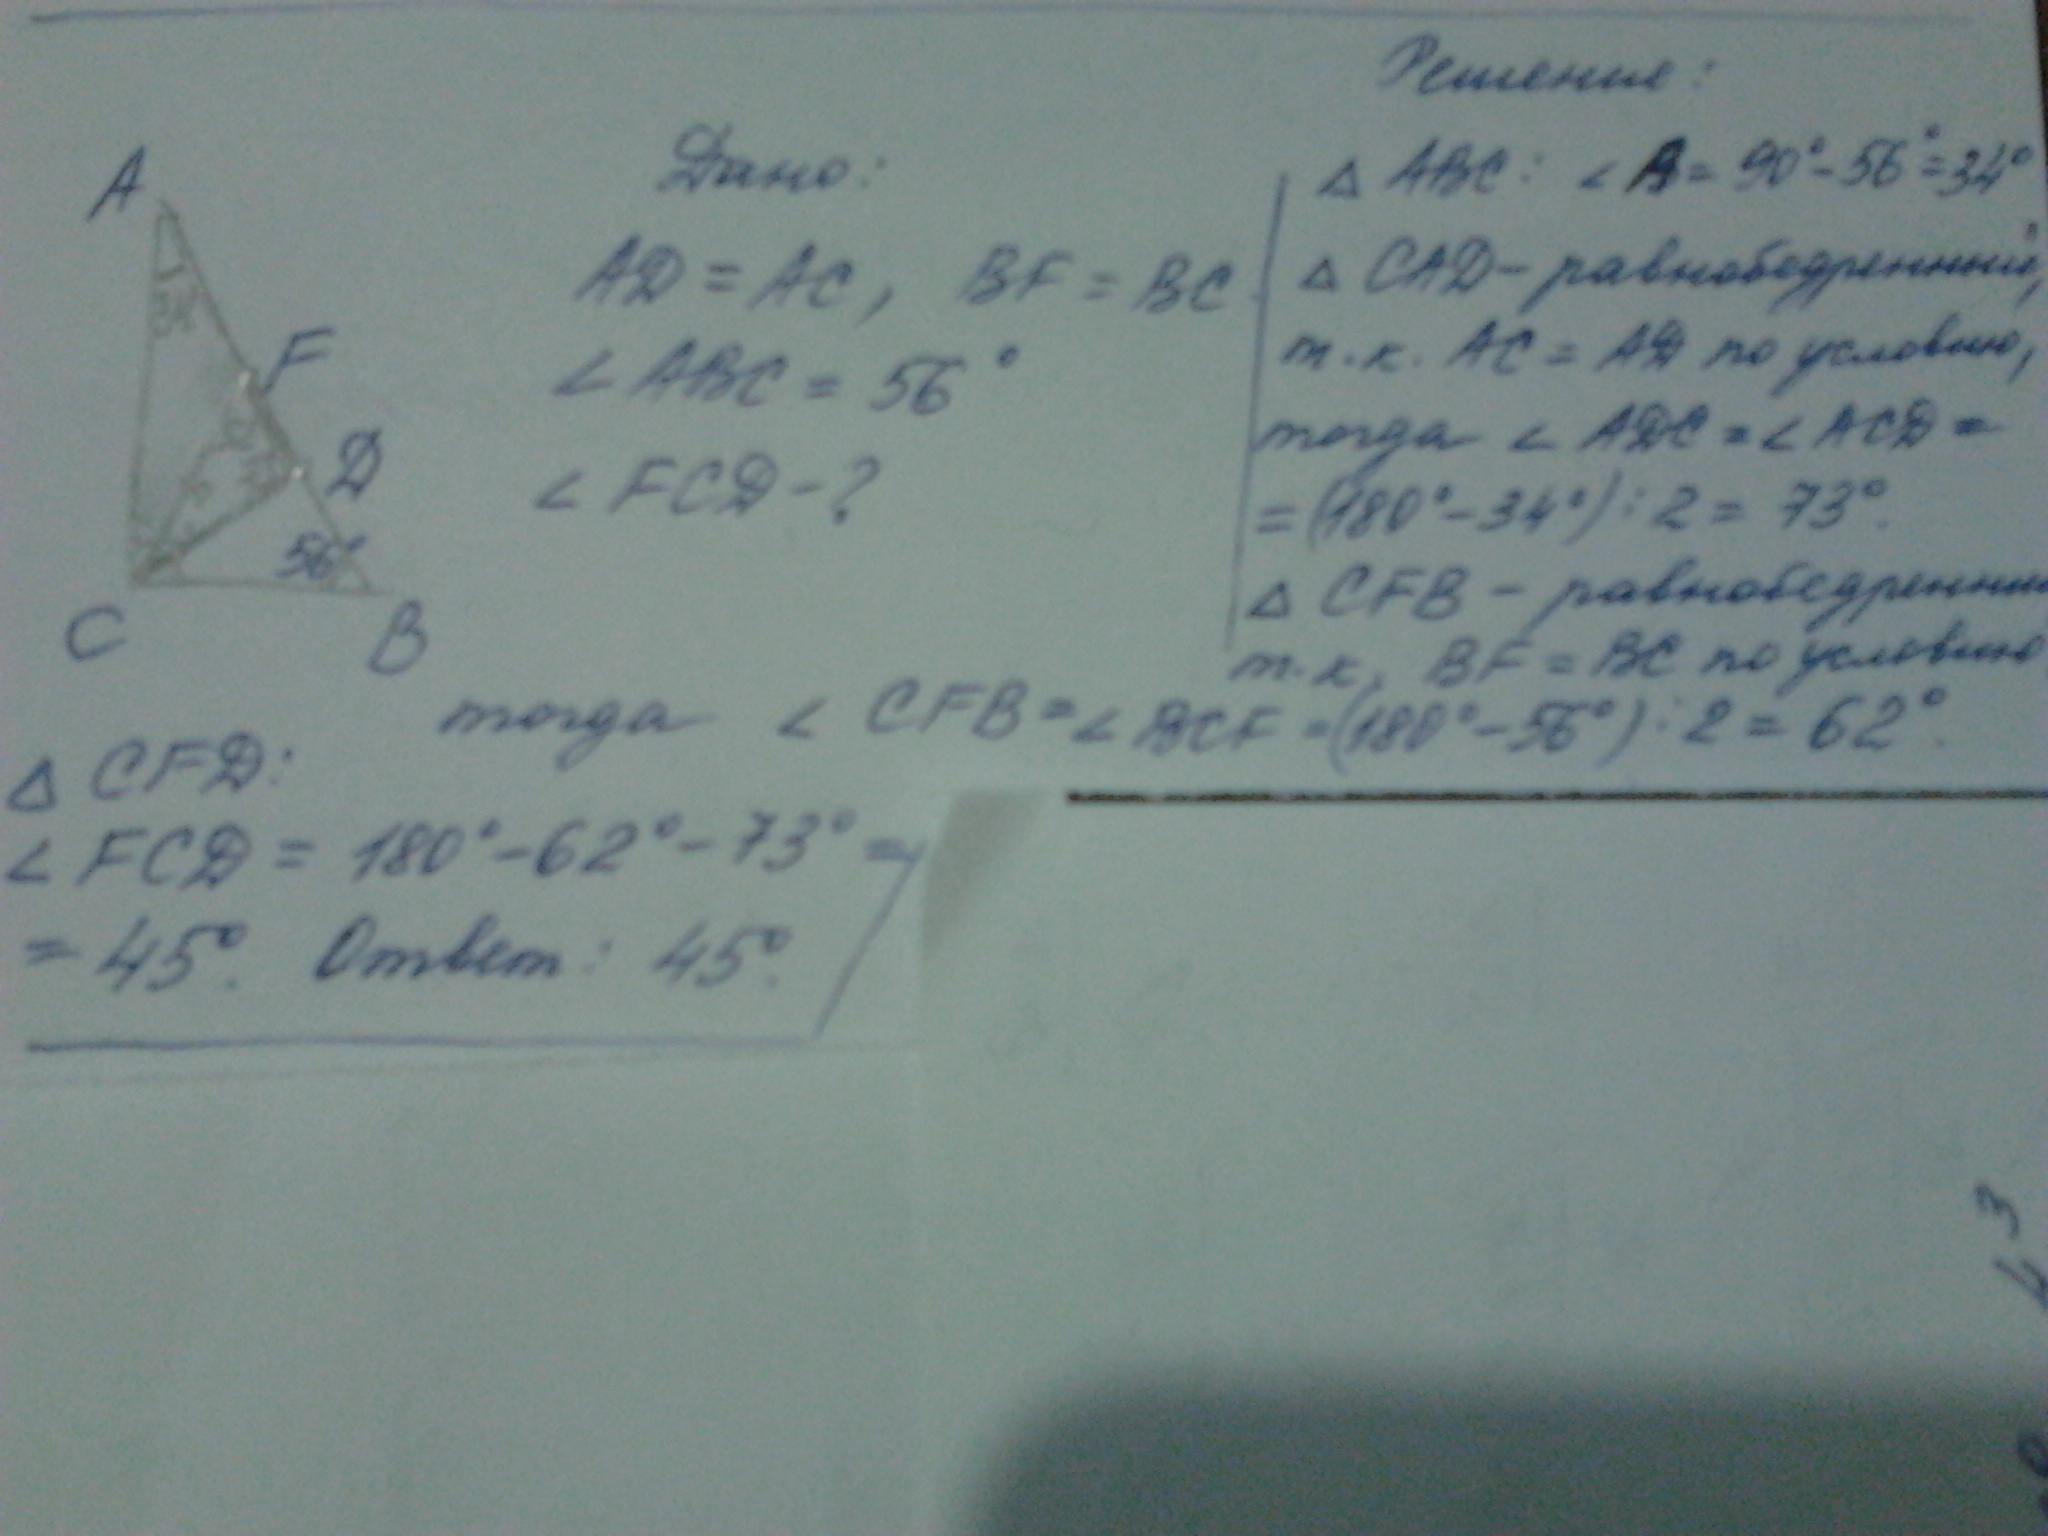 Решение:
Дано:
AD = AC, BF = BC
∠ ABC = 56°
∠ FCD - ?
A
F
D
56°
C
B
△ ABC: ∠ A = 90° - 56° = 34°
△ CAD - равнобедренный,
т.к. AC = AD по условию,
тогда ∠ ADC = ∠ ACD =
= (180° - 34°) : 2 = 73°.
△ CFB - равнобедренный
т.к. BF = BC по условию
тогда ∠ CFB = ∠ BCF = (180° - 56°) : 2 = 62°.
△ CFD:
∠ FCD = 180° - 62° - 73° =
= 45°. Ответ: 45°.